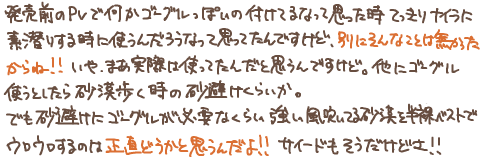 発売前のPVで何かゴーグルっぽいの付けてるなって思った時 てっきりナイラに
素潜りする時に使うんだろうなって思ってたんですけど、別にそんなことは無かった
からね!! いや、まあ実際は使ってたんだと思うんですけど。他にゴーグル
使うとしたら砂漠歩く時の砂避けくらいか。
でも砂避けにゴーグルが必要なくらい強い風吹いてる砂漠を半裸ベストで
ウロウロするのは正直どうかと思うんだよ!! サイードもそうだけどさ!!